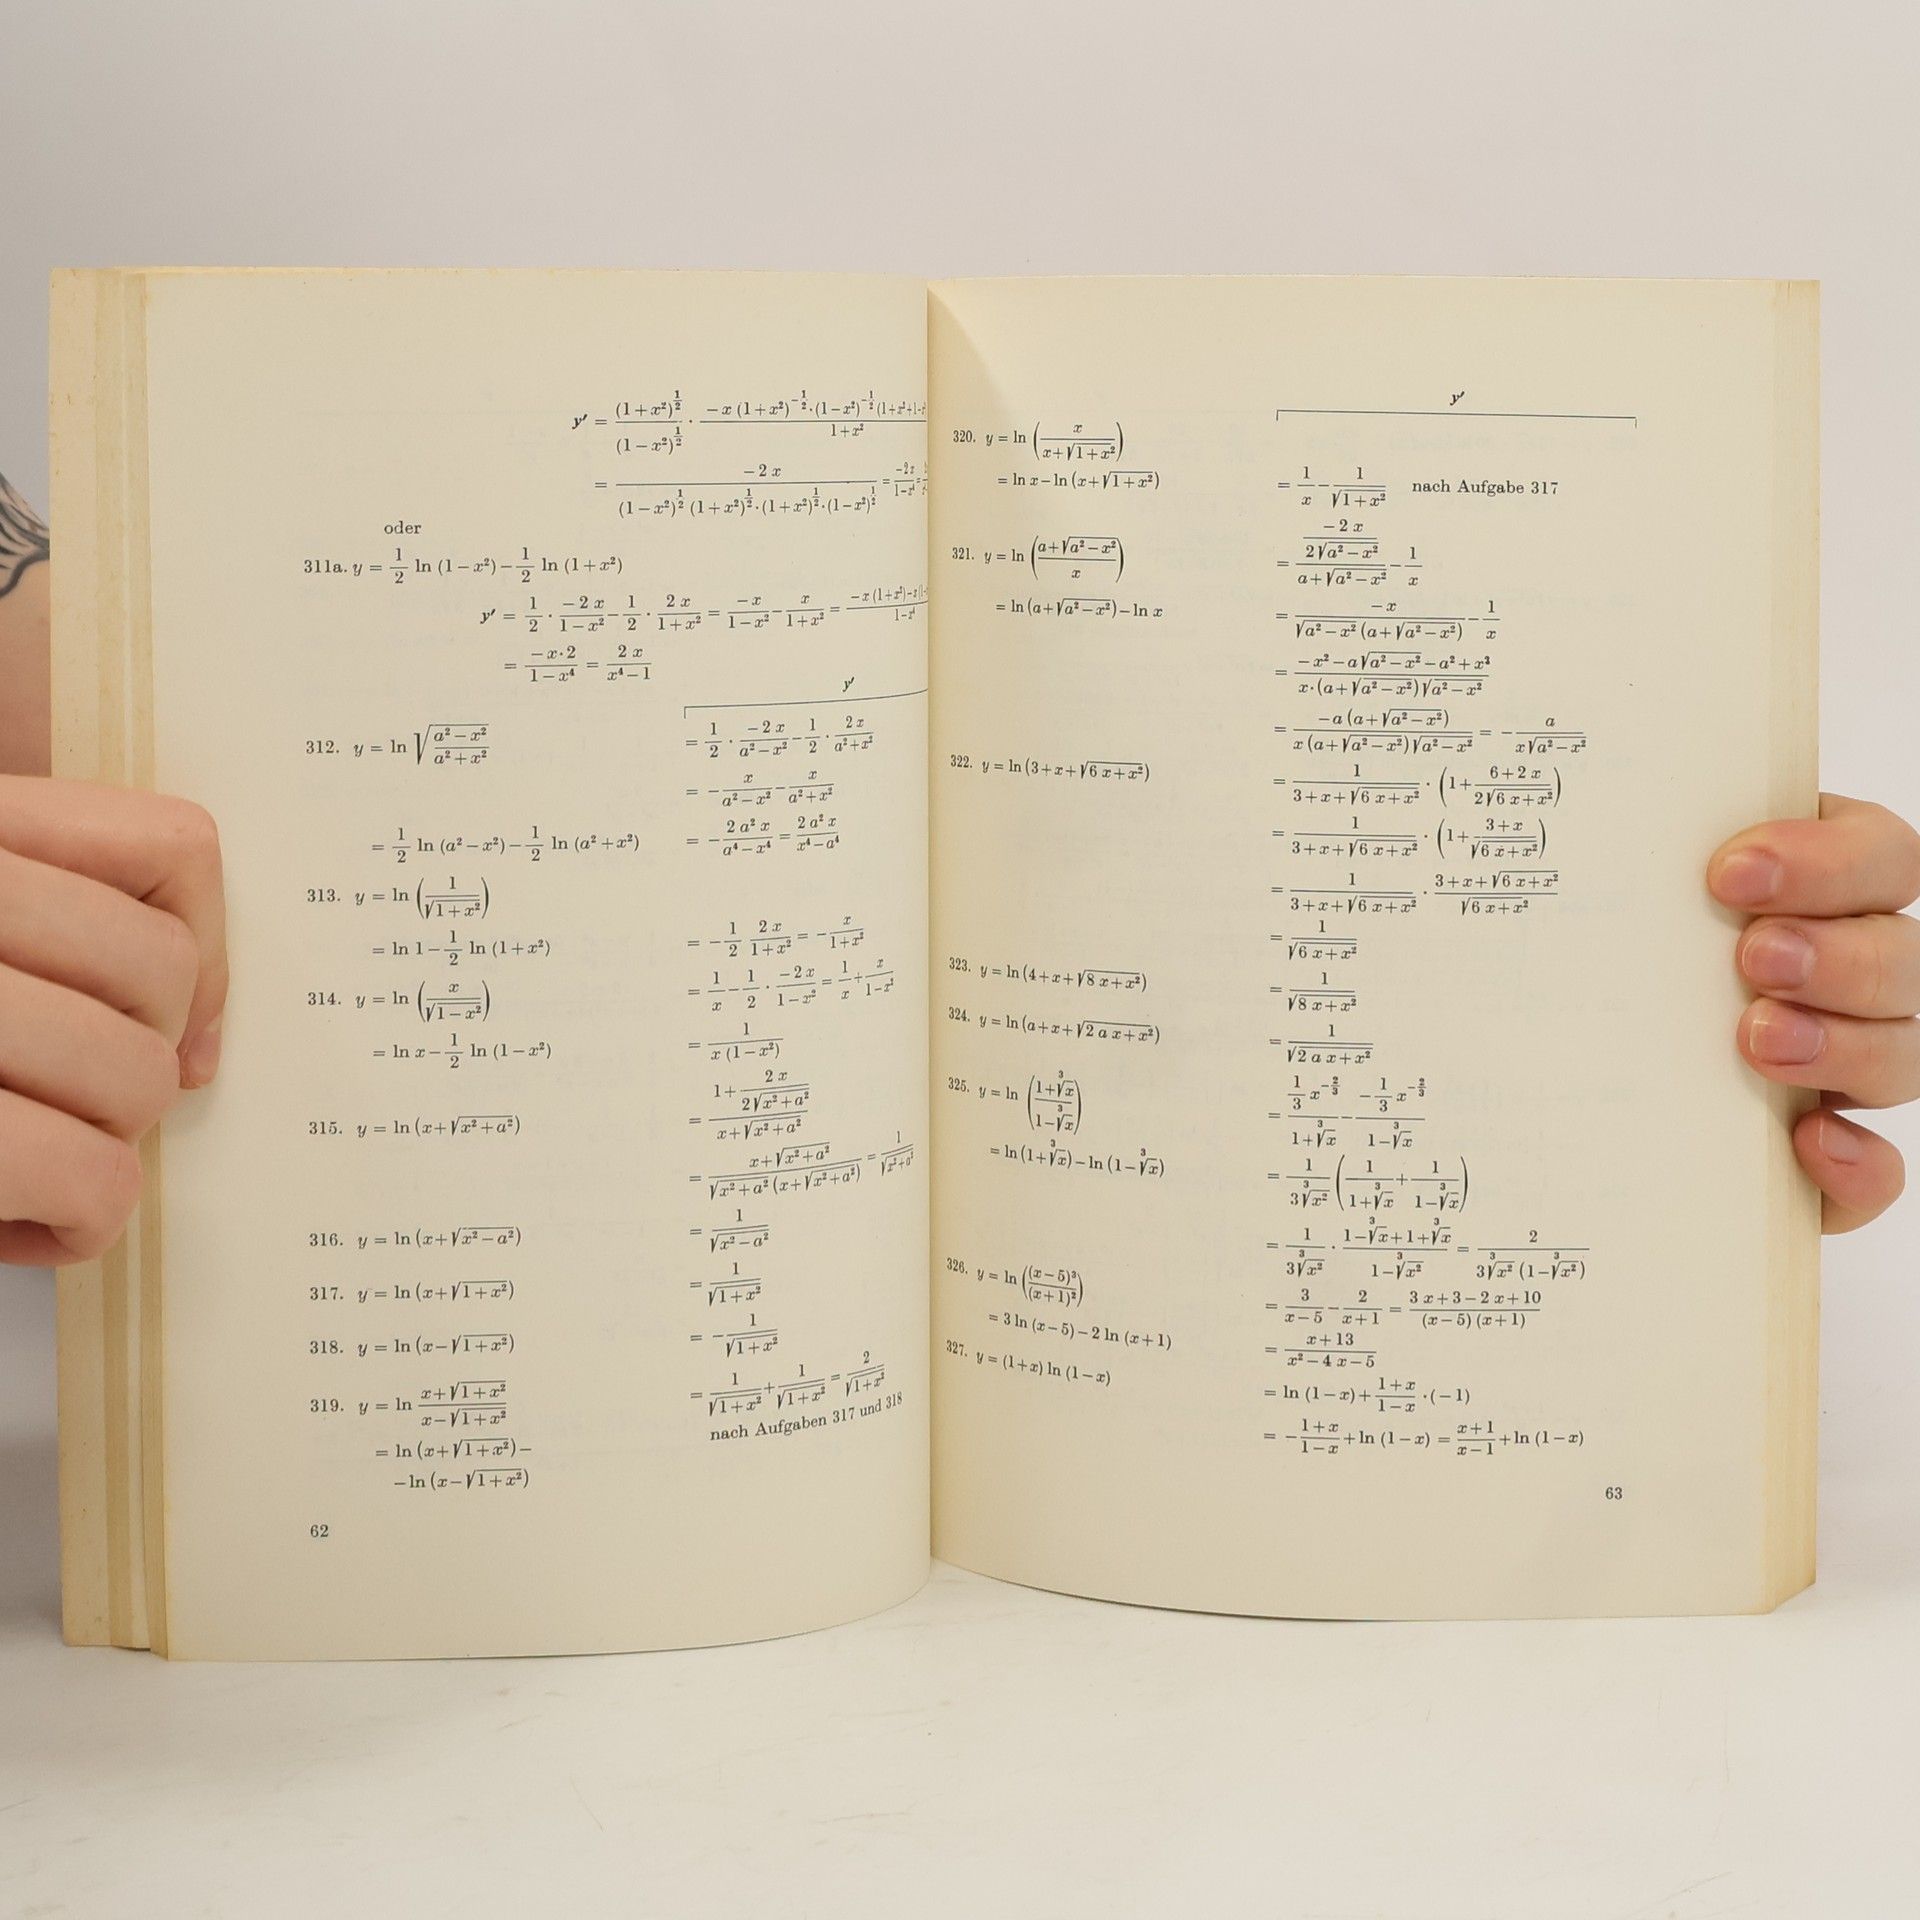 y' = (1+x²)^{1/2}/(1−x²)^{1/2} · −x(1+x²)^{−1/2}·(1−x²)^{−1/2}(1+x²+1−x²/1+x²
= −2x/((1−x²)^{1/2}(1+x²)^{1/2}·(1+x²)^{1/2}·(1−x²)^{1/2}) = −2x/(1−x⁴) =
oder
311a. y = 1/2 ln (1−x²) − 1/2 ln (1+x²)
y' = 1/2 · −2x/(1−x²) − 1/2 · 2x/(1+x²) = −x/(1−x²) − x/(1+x²) = −x(1+x²)−x(1−/1−x⁴
= −x·2/(1−x⁴) = 2x/(x⁴−1)
y'
312. y = ln √((a²−x²)/(a²+x²)) = 1/2 · −2x/(a²−x²) − 1/2 · 2x/(a²+x²)
= −x/(a²−x²) − x/(a²+x²)
= 1/2 ln (a²−x²) − 1/2 ln (a²+x²) = −2a²x/(a⁴−x⁴) = 2a²x/(x⁴−a⁴)
313. y = ln (1/√(1+x²))
= ln 1 − 1/2 ln (1+x²) = −1/2 2x/(1+x²) = −x/(1+x²)
314. y = ln (x/√(1−x²)) = 1/x − 1/2 · −2x/(1−x²) = 1/x + x/(1−x²)
= ln x − 1/2 ln (1−x²) = 1/(x(1−x²))
315. y = ln (x+√(x²+a²)) = (1+2x/(2√(x²+a²)))/(x+√(x²+a²))
= (x+√(x²+a²))/(√(x²+a²)(x+√(x²+a²))) = 1/√(x²+a²)
316. y = ln (x+√(x²−a²)) = 1/√(x²−a²)
317. y = ln (x+√(1+x²)) = 1/√(1+x²)
318. y = ln (x−√(1+x²)) = −1/√(1+x²)
319. y = ln (x+√(1+x²))/(x−√(1+x²)) = 1/√(1+x²) + 1/√(1+x²) = 2/√(1+x²)
nach Aufgaben 317 und 318
= ln (x+√(1+x²)) −
− ln (x−√(1+x²))
62
y'
320. y = ln (x/(x+√(1+x²)))
= ln x − ln (x+√(1+x²)) = 1/x − 1/√(1+x²) nach Aufgabe 317
321. y = ln ((a+√(a²−x²))/x) = (−2x/(2√(a²−x²)))/(a+√(a²−x²)) − 1/x
= ln (a+√(a²−x²)) − ln x = −x/(√(a²−x²)(a+√(a²−x²))) − 1/x
= (−x²−a√(a²−x²)−a²+x²)/(x·(a+√(a²−x²))√(a²−x²))
= −a(a+√(a²−x²))/(x(a+√(a²−x²))√(a²−x²)) = −a/(x√(a²−x²))
322. y = ln (3+x+√(6x+x²)) = 1/(3+x+√(6x+x²)) · (1+(6+2x)/(2√(6x+x²)))
= 1/(3+x+√(6x+x²)) · (1+(3+x)/√(6x+x²))
= 1/(3+x+√(6x+x²)) · (3+x+√(6x+x²))/√(6x+x²)
= 1/√(6x+x²)
323. y = ln (4+x+√(8x+x²)) = 1/√(8x+x²)
324. y = ln (a+x+√(2ax+x²)) = 1/√(2ax+x²)
325. y = ln ((1+∛x)/(1−∛x)) = (1/3 x^{−2/3})/(1+∛x) − (−1/3 x^{−2/3})/(1−∛x)
= ln (1+∛x) − ln (1−∛x) = 1/(3∛x²) (1/(1+∛x) + 1/(1−∛x))
= 1/(3∛x²) · (1−∛x+1+∛x)/(1−∛x²) = 2/(3∛x² (1−∛x²))
326. y = ln ((x−5)³/(x+1)²)
= 3 ln (x−5) − 2 ln (x+1) = 3/(x−5) − 2/(x+1) = (3x+3−2x+10)/((x−5)(x+1))
= (x+13)/(x²−4x−5)
327. y = (1+x) ln (1−x) = ln (1−x) + (1+x)/(1−x) · (−1)
= −(1+x)/(1−x) + ln (1−x) = (x+1)/(x−1) + ln (1−x)
63